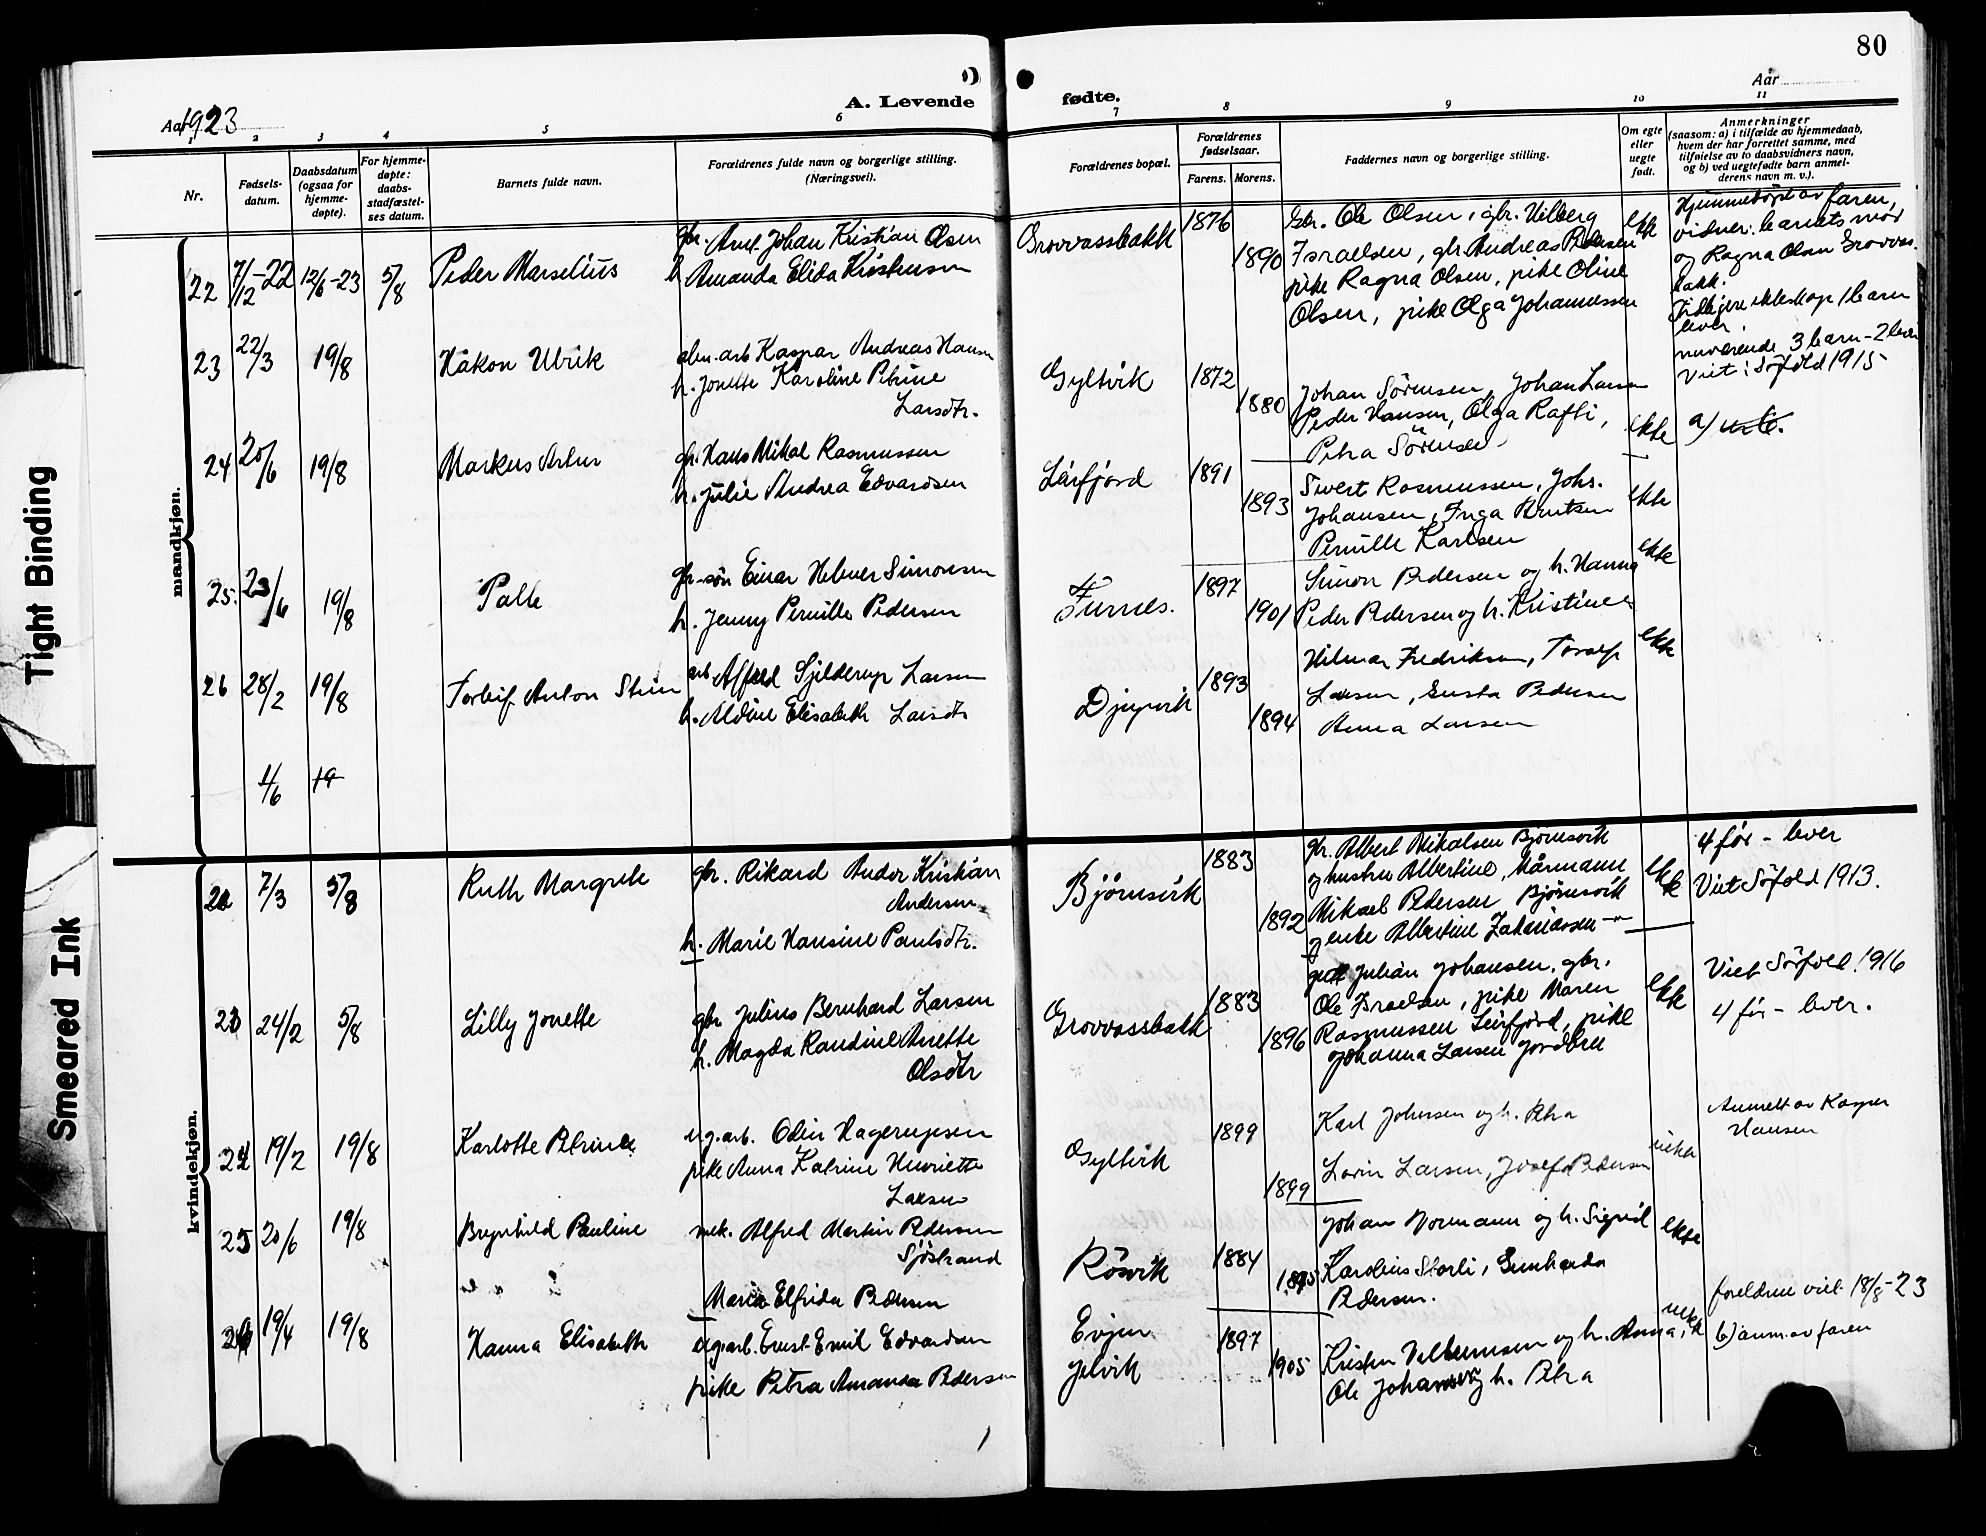 80
Aar 1923
A. Levende
fødte.
Aar
1
2
3
4
5
6
7
8
9
10
11
Nr.
Fødsels-
datum.
Daabsdatum
(ogsaa for
hjemme-
døpte).
For hjemme-
døpte:
daabs-
stadfæstel-
ses datum.
Barnets fulde navn.
Forældrenes fulde navn og borgerlige stilling.
(Næringsvei).
Forældrenes bopæl.
Forældrenes
fødselsaar.
Farens.
Morens.
Faddernes navn og borgerlige stilling.
Om egte
eller
uegte
født.
Anmerkninger
(saasom: a) i tilfælde av hjemmedaab,
hvem der har forrettet samme, med
tilføielse av to daabsvidners navn,
og b) ved uegtefødte barn anmel-
derens navn m. v.).
mandkjøn.
22
7/12-22
12/6-23
5/8
Peder Marselius
gbr. Arnt Johan Kristian Olsen
h. Amanda Elida Kristensen
Grovvassbakk
1876
1890
Gbr. Ole Olsen, gbr. Vilberg
Israelsen, gbr Andreas Pedersen
pike Ragna Olsen, pike Oline
Olsen, pike Olga Johannessen
ekte
Hjemmedøpt av faren,
vidner: barnets mor
og Ragna Olsen Grovvas-
bakk.
Tidligere ekteskap 1 barn
lever.
nuværende 3 barn - 2 lever
Viet i Søfold 1915
23
22/3
19/8
Håkon Ulrik
alm. arb Kaspar Andreas Hansen
h. Jonette Karoline Petrine
Larsdtr.
Gyltvik
1872
1880
Johan Sørensen, Johan Larsen
Peder Hansen, Olga Rafti,
Petra Sørensen
ekte
a)
24
20/6
19/8
Markus Artur
gbr. Hans Mikal Rasmussen
h. Julie Andrea Edvardsen
Leirfjord
1891
1893
Sivert Rasmussen, Johs.
Johansen, Inga Bentsen
Pernille Karlsen
ekte
25
23/6
19/8
Palle
gbr-søn Einar Helmer Simonsen
h. Jenny Pernille Pedersen
Furnes.
1897
1901
Simon Pedersen og h. Hanna
Peder Pedersen og h. Kristine
ekte
26
28/2
19/8
Torleif Anton Stein
arb Alfred Gjilderup Larsen
h. Aldine Elisabeth Larsdtr
Djupvik
1893
1894
Hilmar Fredriksen, Toralf
Larsen, Gusta Pedersen
Anna Larsen
ekte
1/6
19
kvindekjøn.
22
7/3
5/8
Ruth Margrete
gbr. Rikard Andor Kristian
Andersen
h. Marie Hansine Paulsdtr.
Bjørnsvik
1883
1892
gbr. Albert Mikalsen Bjørnsvik
og hustru Albertine, Mårmann
Mikael Pedersen Bjørnsvik
enke Albertine Zakariassen -"-
ekte
4 før - lever
Viet Søfold 1913.
23
24/2
5/8
Lilly Jonette
gbr Julius Bernhard Larsen
h. Magda Randine Anette
Olsdtr
Grovvassbakk
1883
1896
Julian Johansen, gbr.
Ole Israelsen, pike Maren
Rasmussen Leirfjord, pike
Johanna Larsen Jordbru
ekte
Viet Sørfold 1916
4 før - lever.
24
19/2
19/8
Karlotte Petrine
ug.arb. Odin Hagerupsen
pike Anna Katrine Henriette
Larsen
Gyltvik
1899
1899
Karl Johnsen og h. Petra
Lorin Larsen, Josefa Pedersen
uekte
Anmeldt av Kasper
Hansen
25
20/6
19/8
Brynhild Pauline
mek. Alfred Martin Pedersen
Sjøstrand
Maria Elfrida Pedersen
Røsvik
1884
1895
Johan Normann og h. Sigrid
Karolius Storli, Gunharda
Pedersen.
ekte
26
19/4
19/8
Hanna Elisabeth
ug.arb. Ernst Emil Edvardsen
pike Petra Amanda Pedersen
Evjen
Jelvik
1897
1905
Kristen Vilhelmsen og h. Anna,
Ole Johansen og h. Petra
uekte
foreldrene viet 18/8-23
b) anm. av faren
Tight Binding
Smeared Ink